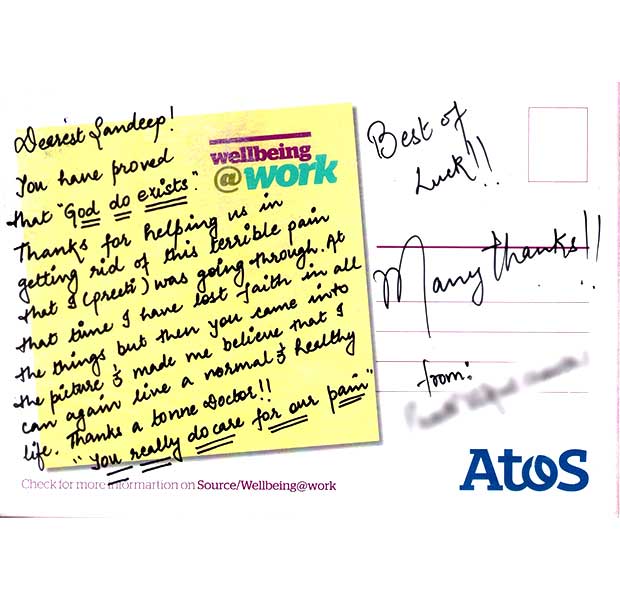 Dearest Sandeep!
wellbeing
@work
You have proved
that "God do exists".
Thanks for helping us in
getting rid of this terrible pain
that I (preeti) was going through. At
that time I have lost faith in all
the things but then you came into
the picture & made me believe that I
can again live a normal & healthy
life. Thanks a tonne Doctor!!
"You really do care for our pain"
Check for more informartion on Source/Wellbeing@work
Best of
Luck!!
Many thanks!!
from:
Atos